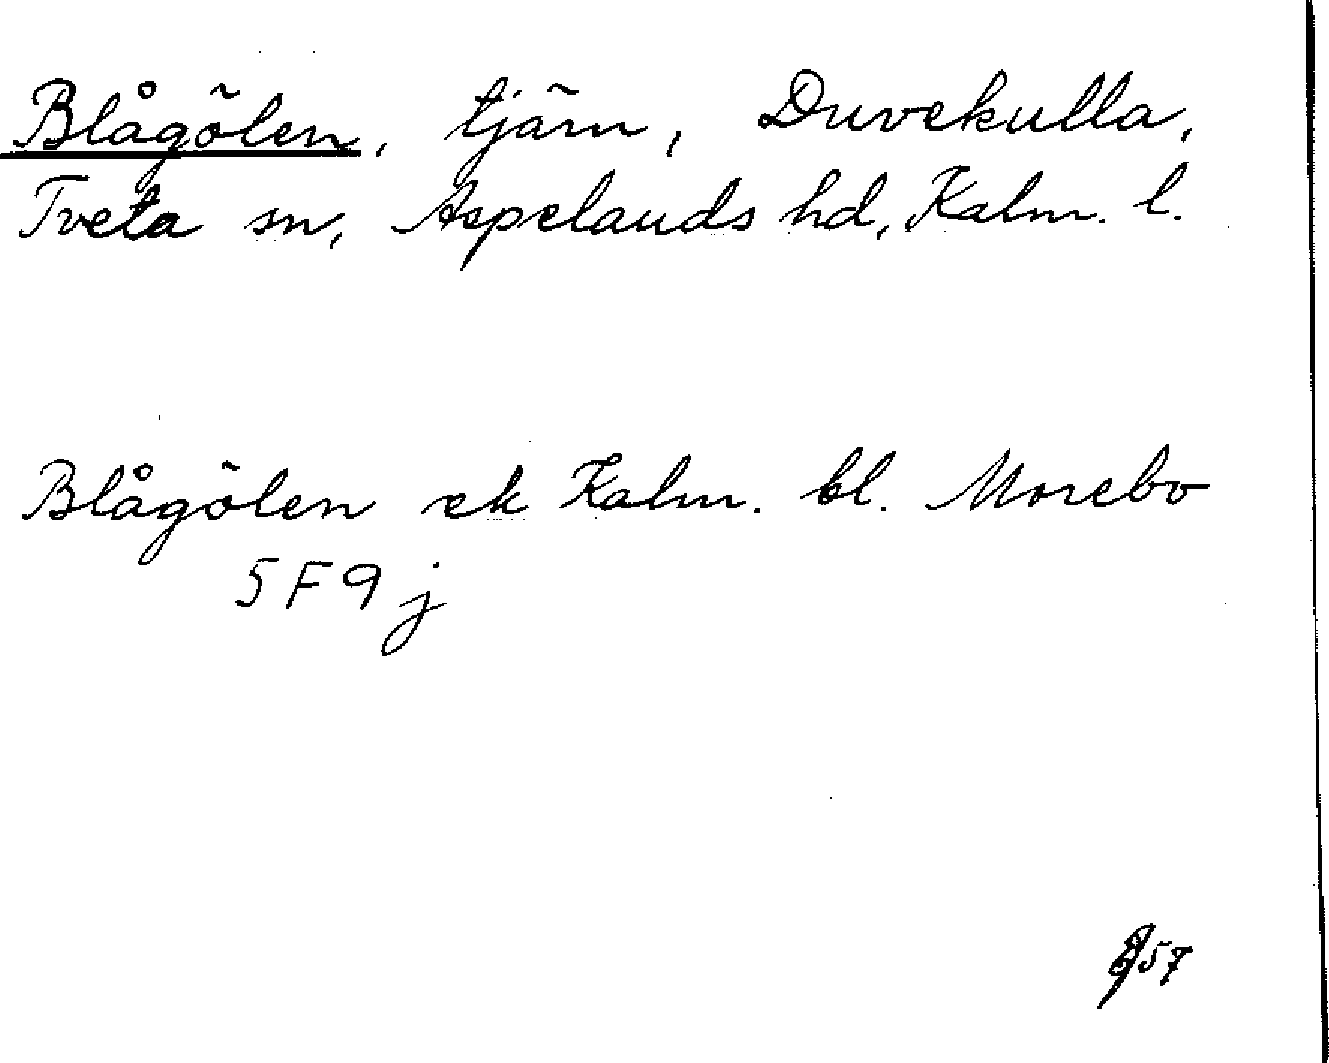 Blågölen, tjärn, Duvekulla,
Tveta sn, Aspelands hd, Kalm. l.
Blågölen ek Kalm. bl. Morebo
5F9j
57